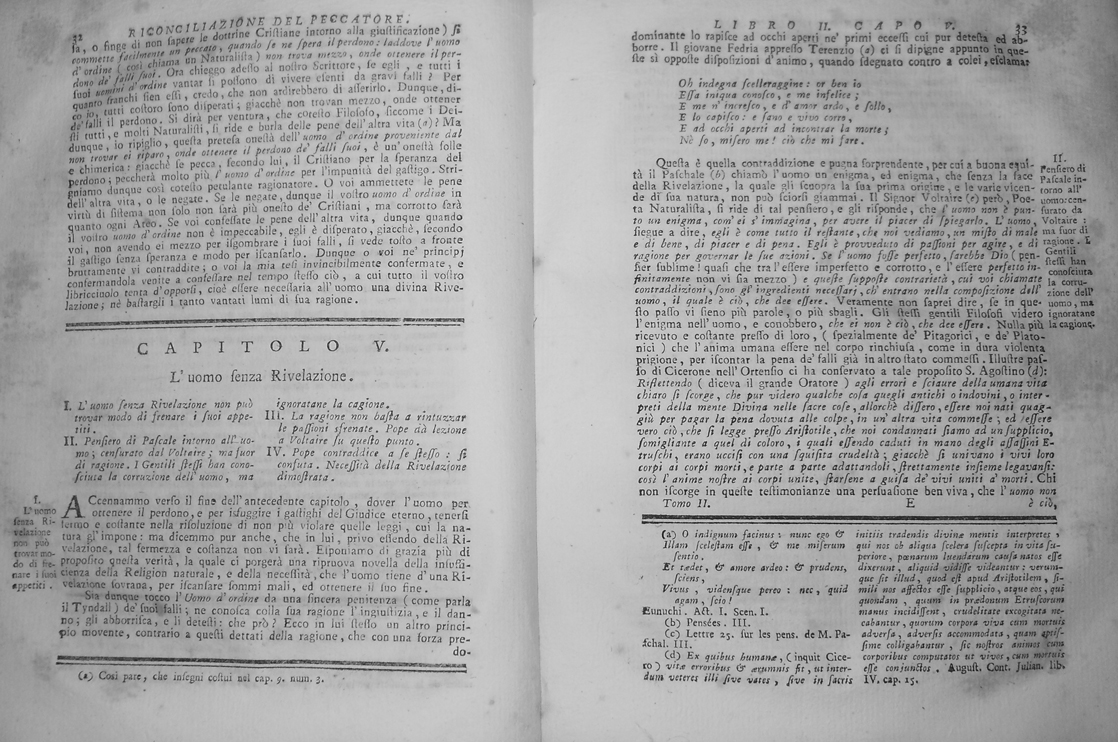 32 RICONCILIAZIONE DEL PECCATORE.
la, o finge di non sapere le dottrine Cristiane intorno alla giustificazione) si
commette facilmente un peccato, quando se ne spera il perdono: laddove l'uomo
d'ordine (così chiama un Naturalista) non trova mezzo, onde ottenere il per-
dono de' falli suoi. Ora chieggo adesso al nostro Scrittore, se egli, e tutti i
suoi uomini d'ordine vantar si possono di vivere esenti da gravi falli? Per
quanto franchi sien essi, credo, che non ardirebbero di asserirlo. Dunque, di-
co io, tutti costoro sono disperati; giacchè non trovan mezzo, onde ottener
de' falli il perdono. Si dirà per ventura, che cotesto Filosofo, siccome i Dei-
sti tutti, e molti Naturalisti, si ride e burla delle pene dell'altra vita (a)? Ma
dunque, io ripiglio, questa pretesa onestà dell'uomo d'ordine proveniente dal
non trovar ei riparo, onde ottenere il perdono de' falli suoi, è un'onestà folle
e chimerica: giacchè se pecca, secondo lui, il Cristiano per la speranza del
perdono; peccherà molto più l'uomo d'ordine per l'impunità del gastigo. Stri-
gniamo dunque così cotesto petulante ragionatore. O voi ammettere le pene
dell'altra vita, o le negate. Se le negate, dunque il vostro uomo d'ordine in
virtù di sistema non solo non sarà più onesto de' Cristiani, ma corrotto sarà
quanto ogni Ateo. Se voi confessate le pene dell'altra vita, dunque quando
il vostro uomo d'ordine non è impeccabile, egli è disperato, giacchè, secondo
voi, non avendo ei mezzo per isgombrare i suoi falli, si vede tosto a fronte
il gastigo senza speranza e modo per iscansarlo. Dunque o voi ne' principj
bruttamente vi contraddite; o voi la mia tesi invincibilmente confermate, e
confermandola venite a confessare nel tempo stesso ciò, a cui tutto il vostro
libricciuolo tenta d'opporsi, cioè essere necessaria all'uomo una divina Rive-
lazione; nè bastargli i tanto vantati lumi di sua ragione.
CAPITOLO V.
L'uomo senza Rivelazione.
I. L'uomo senza Rivelazione non può
trovar modo di frenare i suoi appe-
titi.
II. Pensiero di Pascale intorno all'uo-
mo; censurato dal Voltaire; ma fuor
di ragione. I Gentili stessi han cono-
sciuta la corruzione dell'uomo, ma
ignoratane la cagione.
III. La ragione non basta a rintuzzar
le passioni sfrenate. Pope dà lezione
a Voltaire su questo punto.
IV. Pope contraddice a se stesso: si
confuta. Necessità della Rivelazione
dimostrata.
I.
L'uomo
senza Ri-
velazione
non può
trovar mo-
do di fre-
nare i suoi
appetiti.
ACcennammo verso il fine dell'antecedente capitolo, dover l'uomo per
ottenere il perdono, e per isfuggire i gastighi del Giudice eterno, tenersi
fermo e costante nella risoluzione di non più violare quelle leggi, cui la na-
tura gl'impone: ma dicemmo pur anche, che in lui, privo essendo della Ri-
velazione, tal fermezza e costanza non vi sarà. Esponiamo di grazia più di
proposito questa verità, la quale ci porgerà una riprova novella della insuffi-
cienza della Religion naturale, e della necessità, che l'uomo tiene d'una Ri-
velazione sovrana, per iscansare sommi mali, ed ottenere il suo fine.
Sia dunque tocco l'Uomo d'ordine da una sincera penitenza (come parla
il Tyndall) de' suoi falli; ne conosca colla sua ragione l'ingiustizia, e il dan-
no; gli abborrisca, e li detesti: che prò? Ecco in lui stesso un altro princi-
pio movente, contrario a questi dettati della ragione, che con una forza pre-
do-
(a) Così pare, che insegni costui nel cap. 9. num. 3.
LIBRO II. CAPO V. 33
dominante lo rapisce ad occhi aperti ne' primi eccessi cui pur detesta ed ab-
borre. Il giovane Fedria appresso Terenzio (a) ci si dipigne appunto in que-
ste sì opposte disposizioni d'animo, quando sdegnato contro a colei, esclamar
Oh indegna scelleraggine: or ben io
Essa iniqua conosco, e me infelice;
E me n'incresco, e d'amor ardo, e follo,
E lo capisco: e sano e vivo corro,
E ad occhi aperti ad incontrar la morte;
Nè so, misero me! ciò che mi fare.
Questa è quella contraddizione e pugna sorprendente, per cui a buona equi-
tà il Paschale (b) chiamò l'uomo un enigma, ed enigma, che senza la face
della Rivelazione, la quale gli scuopra la sua prima origine, e le varie vicen-
de di sua natura, non può sciorsi giammai. Il Signor Voltaire (c) però, Poe-
ta Naturalista, si ride di tal pensiero, e gli risponde, che l'uomo non è pun-
to un enigma, com'ei s'immagina, per avere il piacer di spiegarlo. L'uomo,
siegue a dire, egli è come tutto il restante, che noi vediamo, un misto di male
e di bene, di piacer e di pena. Egli è provveduto di passioni per agire, e di
ragione per governar le sue azioni. Se l'uomo fosse perfetto, sarebbe Dio (pen-
sier sublime! quasi che tra l'essere imperfetto e corrotto, e l'essere perfetto in-
finitamente non vi sia mezzo) e queste supposte contrarietà, cui voi chiamate
contraddizioni, sono gl'ingredienti necessarj, ch'entrano nella composizione dell'
uomo, il quale è ciò, che dee essere. Veramente non saprei dire, se in que-
sto passo vi sieno più parole, o più sbagli. Gli stessi gentili Filosofi videro
l'enigma nell'uomo, e conobbero, che ei non è ciò, che dee essere. Nulla più
ricevuto e costante presso di loro, (spezialmente de' Pitagorici, e de' Plato-
nici) che l'anima umana essere nel corpo rinchiusa, come in dura violenta
prigione, per iscontar la pena de' falli già in altro stato commessi. Illustre pas-
so di Cicerone nell'Ortensio ci ha conservato a tale proposito S. Agostino (d):
Riflettendo (diceva il grande Oratore) agli errori e sciaure della umana vita
chiaro si scorge, che pur videro qualche cosa quegli antichi o indovini, o inter-
preti della mente Divina nelle sacre cose, allorchè dissero, essere noi nati quag-
giù per pagar la pena dovuta alle colpe, in un'altra vita commesse; ed essere
vero ciò, che si legge presso Aristotile, che noi condannati siamo ad un supplicio,
somigliante a quel di coloro, i quali essendo caduti in mano degli assassini E-
truschi, erano uccisi con una squisita crudeltà; giacchè si univano i vivi loro
corpi ai corpi morti, e parte a parte adattandoli, strettamente insieme legavansi:
così l'anime nostre ai corpi unite, starsene a guisa de' vivi uniti a' morti. Chi
non iscorge in queste testimonianze una persuasione ben viva, che l'uomo non
Tomo II. E è ciò,
II.
Pensiero di
Pascale in-
torno all'
uomo: cen-
surato da
Voltaire;
ma fuor di
ragione. I
Gentili
stessi han
conosciuta
la corru-
zione dell'
uomo, ma
ignoratane
la cagione.
(a) O indignum facinus: nunc ego &
Illam scelestam esse, & me miserum
sentio.
Et tædet, & amore ardeo: & prudens,
sciens,
Vivus, vidensque pereo: nec, quid
agam, scio!
Eunuchi. Act. I. Scen. I.
(b) Pensées. III.
(c) Lettre 25. sur les pens. de M. Pa-
schal. III.
(d) Ex quibus humanæ, (inquit Cice-
ro) vitæ erroribus & ærumnis fit, ut inter-
dum veteres illi sive vates, sive in sacris
initiis tradendis divinæ mentis interpretes,
qui nos ob aliqua scelera suscepta in vita su-
periore, pœnarum luendarum causa natos esse
dixerunt, aliquid vidisse videantur: verum-
que sit illud, quod est apud Aristotilem, si-
mili nos affectos esse supplicio, atque eos, qui
quondam, quum in prædonum Etruscorum
manus incidissent, crudelitate excogitata ne-
cabantur, quorum corpora viva cum mortuis
adversa, adversis accommodata, quam aptis-
sime colligabantur, sic nostros animos cum
corporibus computatos ut vivos, cum mortuis
esse conjunctos. August. Cont. Julian. lib.
IV. cap. 15.